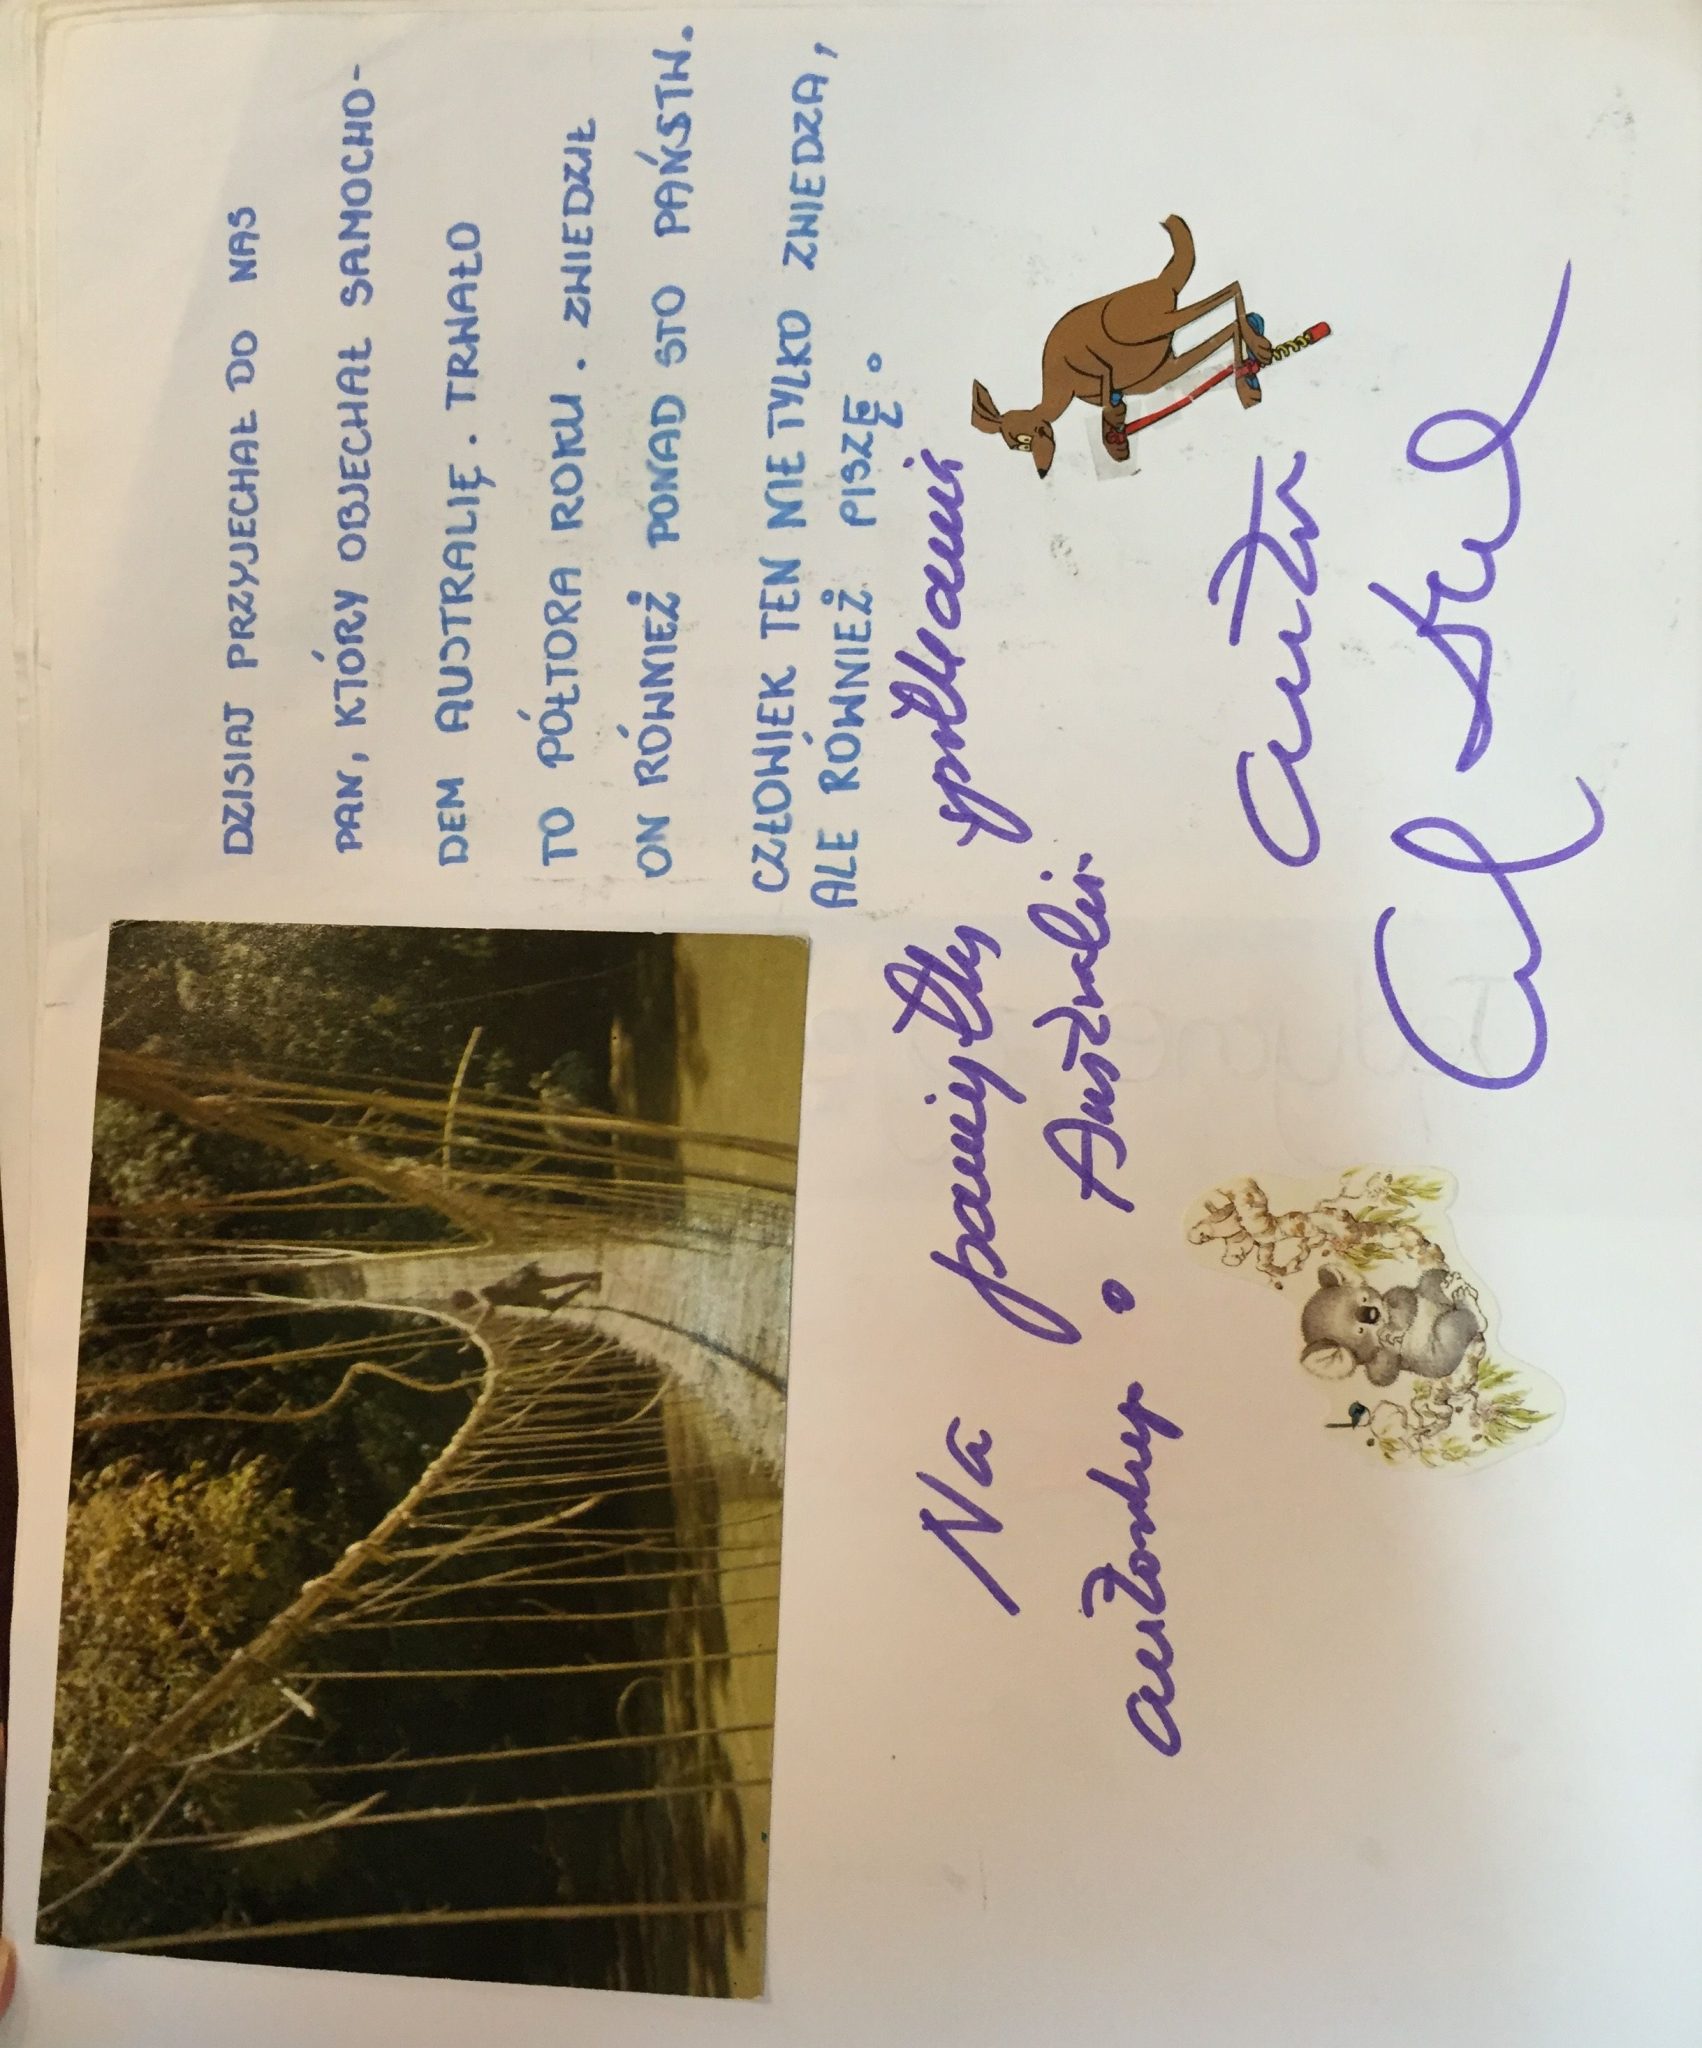 DZISIAJ PRZYJECHAŁ DO NAS
PAN, KTÓRY OBJECHAŁ SAMOCHO-
DEM AUSTRALIĘ. TRWAŁO
TO PÓŁTORA ROKU. ZWIEDZIŁ
ON RÓWNIEŻ PONAD STO PAŃSTW.
CZŁOWIEK TEN NIE TYLKO ZWIEDZA,
ALE RÓWNIEŻ PISZĘ.
Na pamiątkę spotkania
autorskiego o Australii.
autor